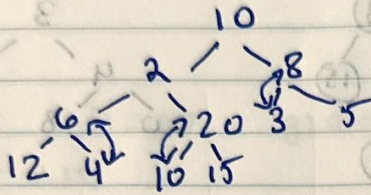 10
2 8
6 20 3 5
12 4 10 15